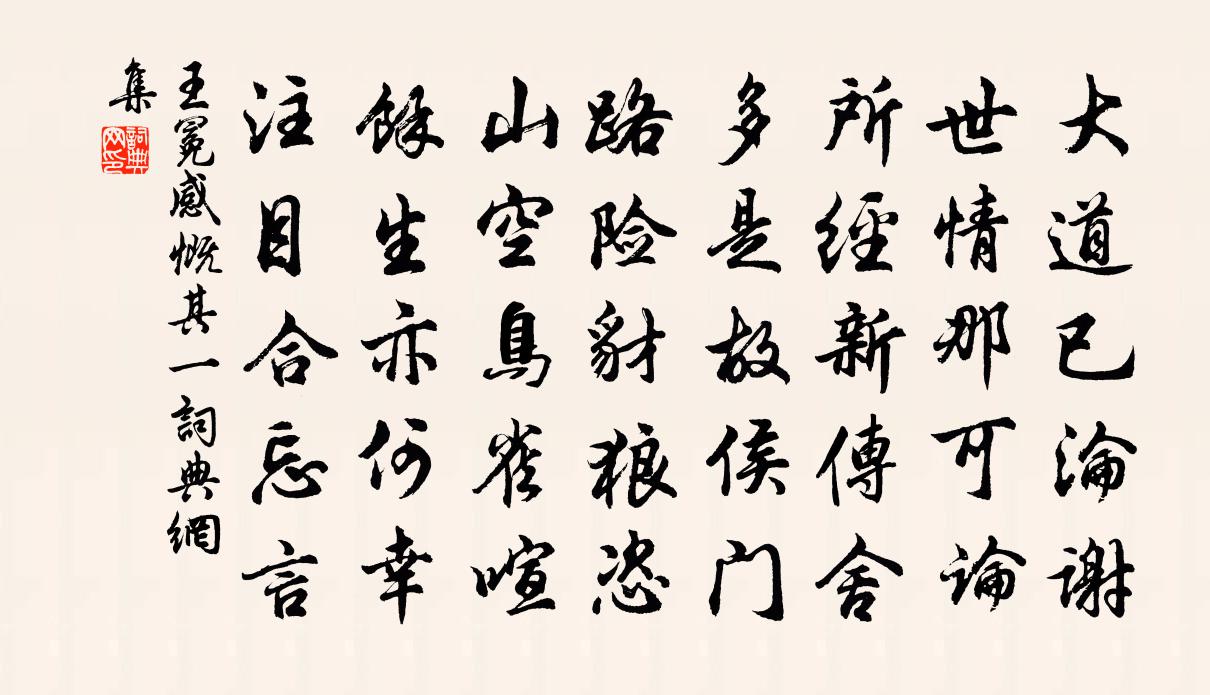 大道已淪謝
世情那可論
所經新傳舍
多是故侯门
路险豺狼恣
山空鳥雀喧
餘生亦何幸
注目合忘言
王冕感慨其一詞典網
集
詞典
网印